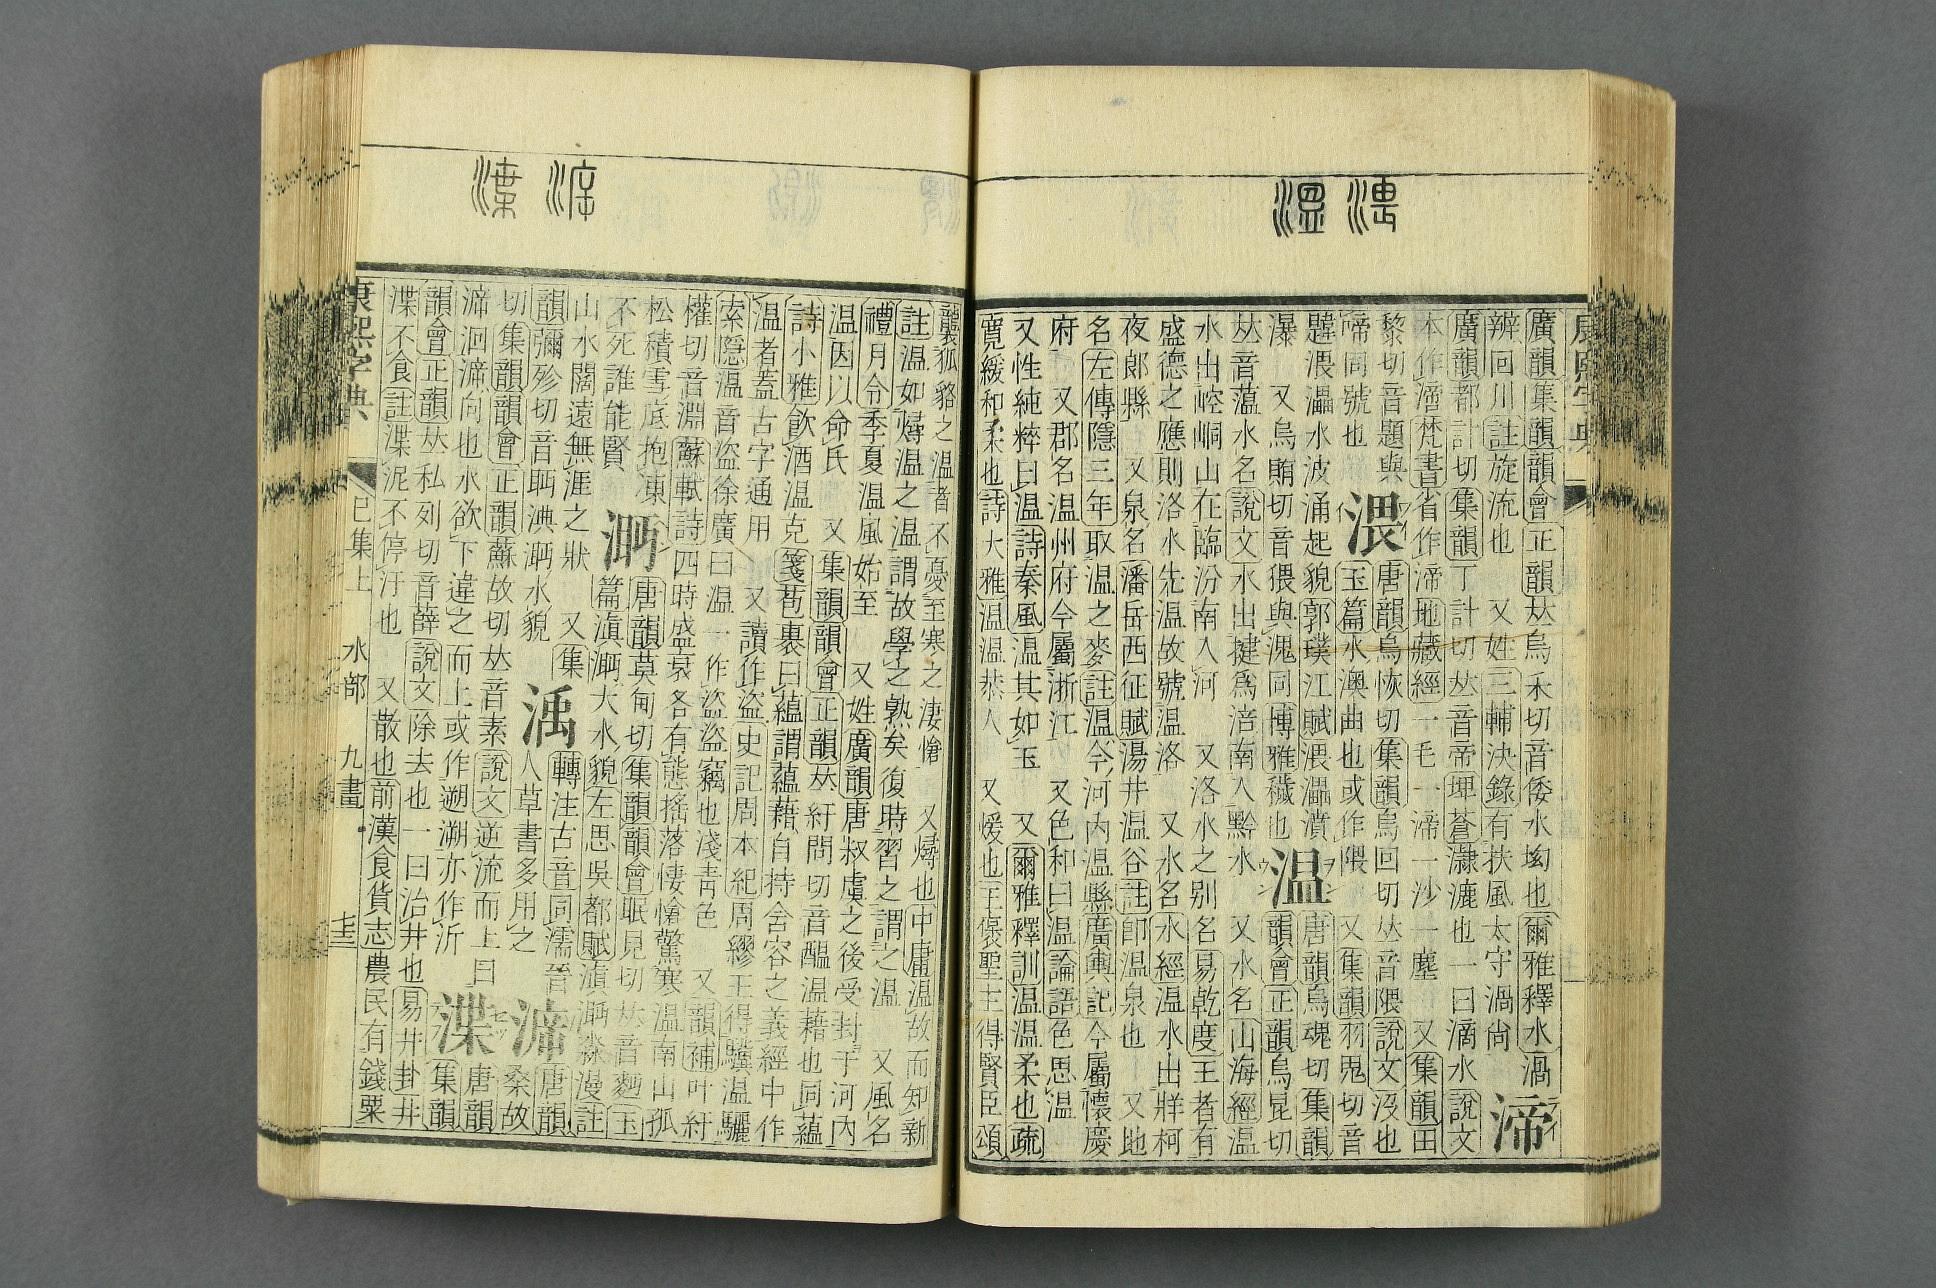 渨
温
康熙字典
廣韻集韻韻會正韻𠀤烏禾切音倭水坳也爾雅釋水渦
辨回川註旋流也 又姓三輔決錄有扶風太守渦尚 渧
廣韻都計切集韻丁計切𠀤音帝埤蒼漉也一曰滴水說文
本作㴛梵書省作渧地藏經一毛一渧一沙一塵 又集韻田
黎切音題與
啼同號也 渨
唐韻烏恢切集韻烏回切𠀤音隈說文沒也
玉篇水澳曲也或作隈 又集韻羽鬼切音
韙渨㵽水波涌起貌郭璞江賦渨㵽濆
瀑 又烏賄切音猥與溾同博雅穢也 温
唐韻烏魂切集韻
韻會正韻烏昆切
𠀤音薀水名說文水出揵爲涪南入黔水 又水名山海經温
水出崆峒山在臨汾南入河 又洛水之别名易乾度王者有
盛德之應則洛水先温故號温洛 又水名水經温水出牂柯
夜郎縣 又泉名潘岳西征賦湯井温谷註卽温泉也 又地
名左傳隱三年取温之麥註温今河內温縣廣輿記今屬懷慶
府 又郡名温州府今屬浙江 又色和曰温論語色思温
又性純粹曰温詩秦風温其如玉 又爾雅釋訓温温柔也疏
寬緩和柔也詩大雅温温恭人 又煖也王褒聖主得賢臣頌
㴑
渫
襲狐貉之温者不憂至寒之淒愴 又燖也中庸温故而知新
註温如燖温之温謂故學之熟矣復時習之謂之温 又風名
禮月令季夏温風始至 又姓廣韻唐叔虞之後受封于河內
温因以命氏 又集韻韻會正韻𠀤紆問切音醖温藉也同藴
詩小雅飮酒温克箋苞裹曰藴謂藴藉自持含容之義經中作
温者蓋古字通用 又讀作盜史記周本紀周繆王得驥温驪
索隱温音盜徐廣曰温一作盜盜竊也淺靑色 又韻補叶紆
權切音淵蘇軾詩四時盛衰各有態搖落悽愴驚寒温南山孤
松積雪底抱凍
不死誰能賢 㴐
唐韻莫甸切集韻韻會眠見切𠀤音麪玉
篇滇㴐大水貌左思吳都賦滇㴐淼漫註
山水闊遠無涯之狀 又集
韻彌殄切音眄淟㴐水貌 渪
轉注古音同濡晉
人草書多用之 㴑
唐韻
桑故
切集韻韻會正韻蘇故切𠀤音素說文逆流而上曰
㴑洄㴑向也水欲下違之而上或作遡溯亦作泝 渫
唐韻
集韻
韻會正韻𠀤私列切音薛說文除去也一曰治井也易井卦井
渫不食註渫泥不停汙也 又散也前漢食貨志農民有錢粟
康熙字典 巳集上 水部 九畫 七三